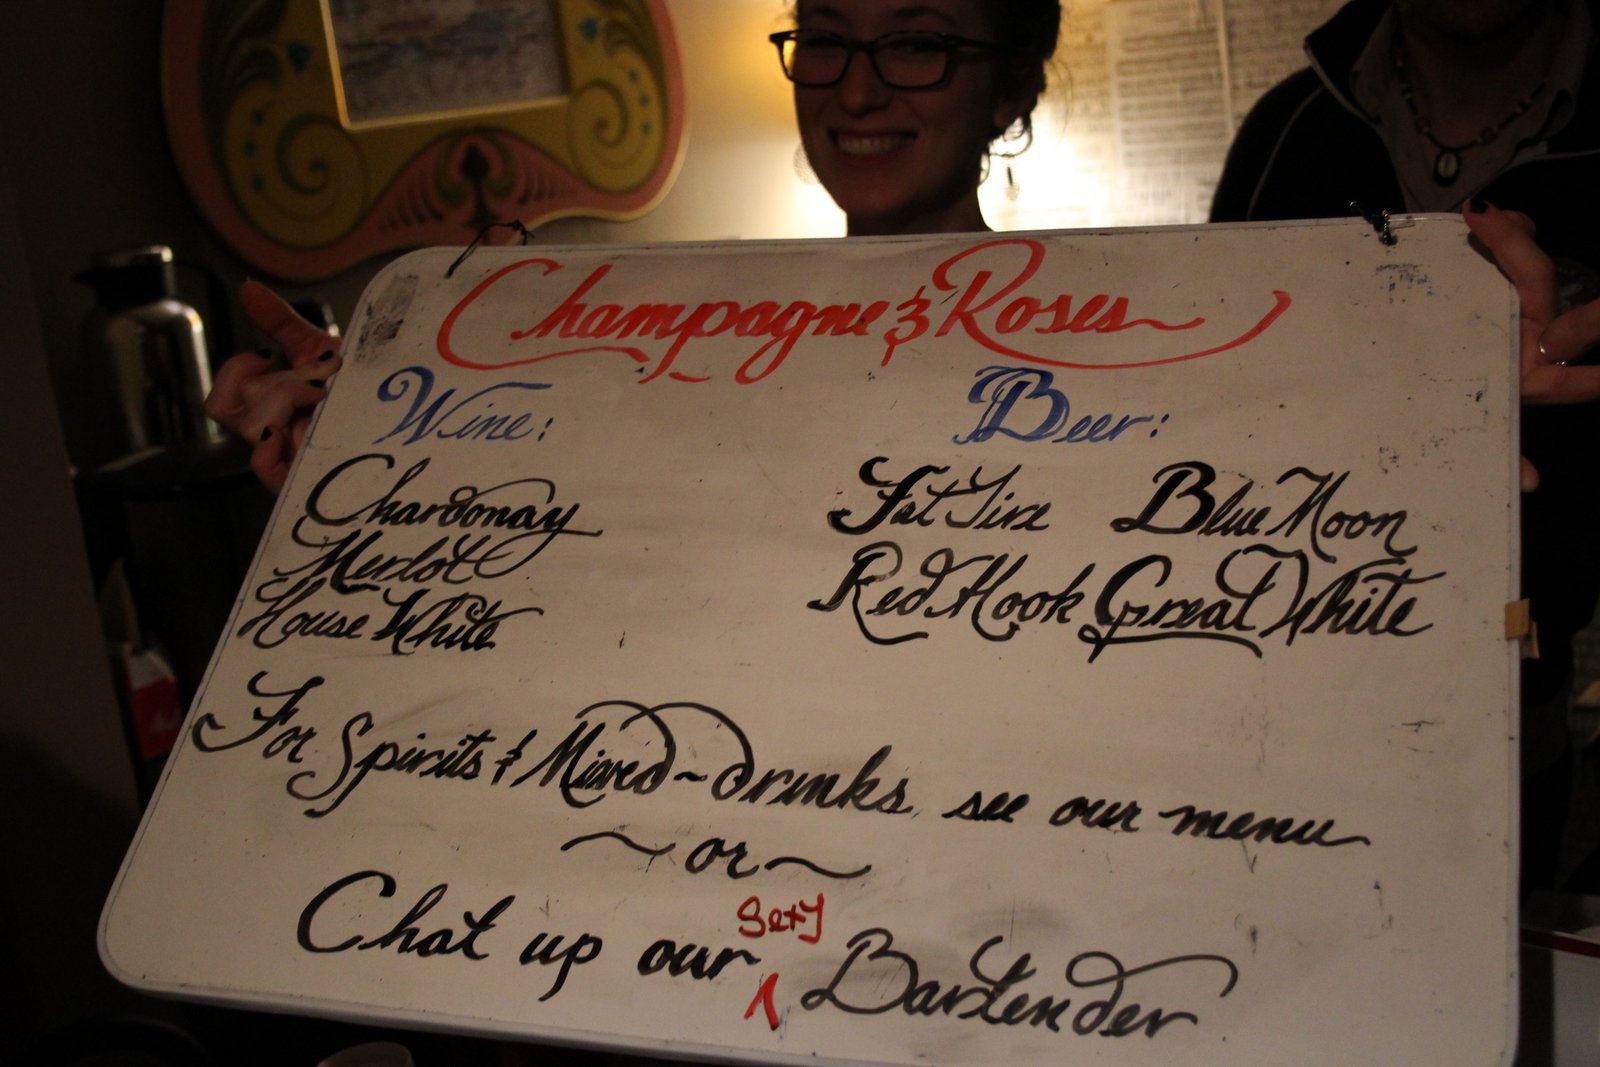 Champagne & Roses
Wine:
Chardonay
Merlot
House White
Beer:
Fat Tire Blue Moon
Red Hook Great White
For Spirits & Mixed-drinks, see our menu
~or~
Chat up our sexy Bartender